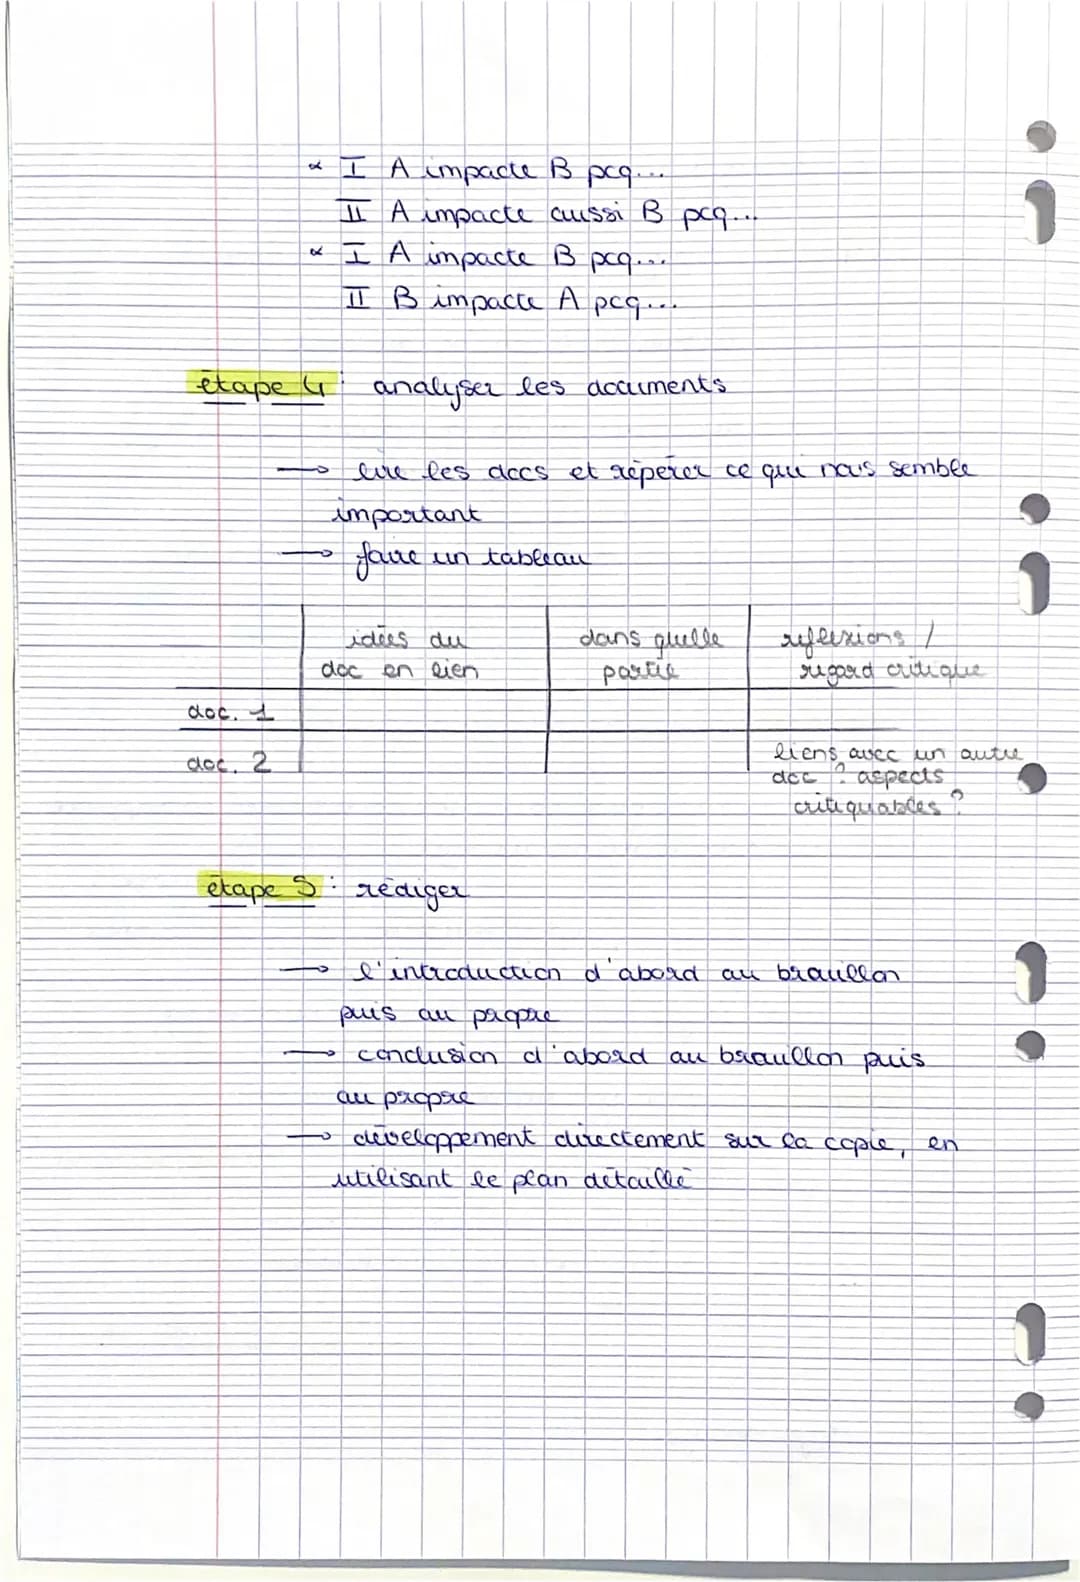 α I A impacte B pcq...
II A impacte aussi B pcq...
α I A impacte B pcq...
II B impacte A pcq...
étape 4 : analyser les documents
→ lire les docs et repérer ce qui nous semble
important
→ faire un tableau
idées du dans quelle réflexions /
doc en lien partie regard critique
doc. 1
doc. 2 liens avec un autre
doc ? aspects
critiquables ?
étape 5 : rédiger
→ l'introduction d'abord au brouillon
puis au propre
→ conclusion d'abord au brouillon puis
au propre
→ développement directement sur la copie, en
utilisant le plan détaillé